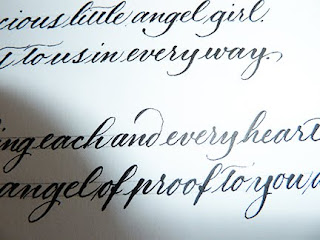 cious little angel girl.
to us in every way.
ing each and every heart
angel, of proof to you,